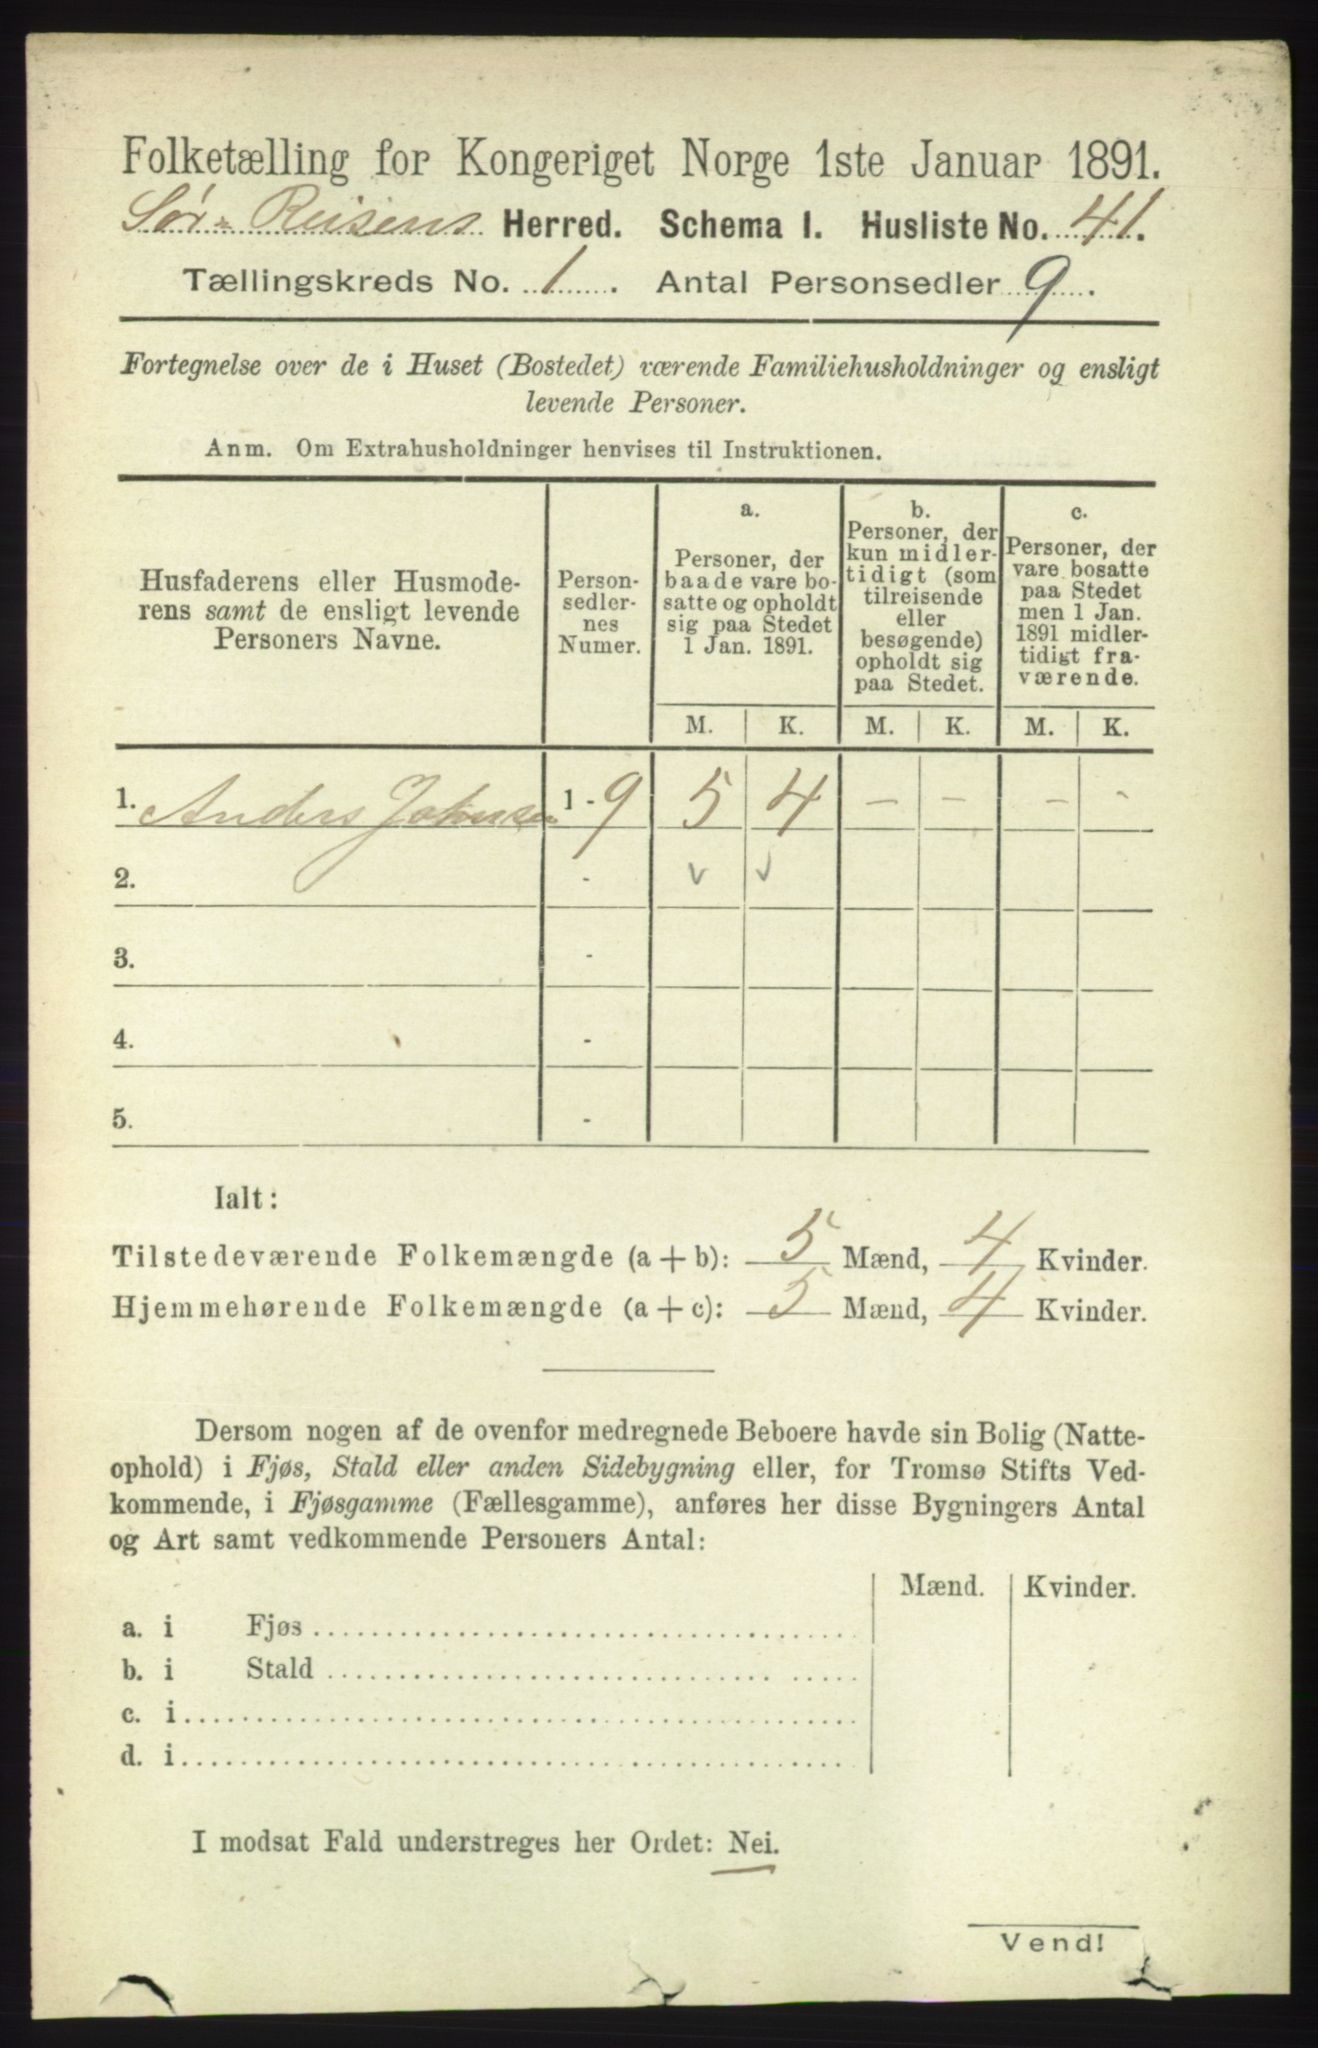 Folketælling for Kongeriget Norge 1ste Januar 1891.
Sør-Reisens Herred. Schema 1. Husliste No. 41.
Tællingskreds No. 1. Antal Personsedler 9.
Fortegnelse over de i Huset (Bostedet) værende Familiehusholdninger og ensligt
levende Personer.
Anm. Om Extrahusholdninger henvises til Instruktionen.
Husfaderens eller Husmode-
rens samt de ensligt levende
Personers Navne.
Person-
sedler-
nes
Numer.
a.
Personer, der
baade vare bo-
satte og opholdt
sig paa Stedet
1 Jan. 1891.
b.
Personer, der
kun midler-
tidigt (som
tilreisende
eller
besøgende)
opholdt sig
paa Stedet.
c.
Personer, der
vare bosatte
paa Stedet
men 1 Jan.
1891 midler-
tidigt fra-
værende.
M. K. M. K. M. K.
1. Anders Johnsen 1-9 5 4 - - - -
2. - v v
3. -
4. -
5. -
Ialt:
Tilstedeværende Folkemængde (a + b): 5 Mænd, 4 Kvinder.
Hjemmehørende Folkemængde (a + c): 5 Mænd, 4 Kvinder.
Dersom nogen af de ovenfor medregnede Beboere havde sin Bolig (Natte-
ophold) i Fjøs, Stald eller anden Sidebygning eller, for Tromsø Stifts Ved-
kommende, i Fjøsgamme (Fællesgamme), anføres her disse Bygningers Antal
og Art samt vedkommende Personers Antal:
Mænd. Kvinder.
a. i Fjøs
b. i Stald
c. i
d. i
I modsat Fald understreges her Ordet: Nei.
Vend!